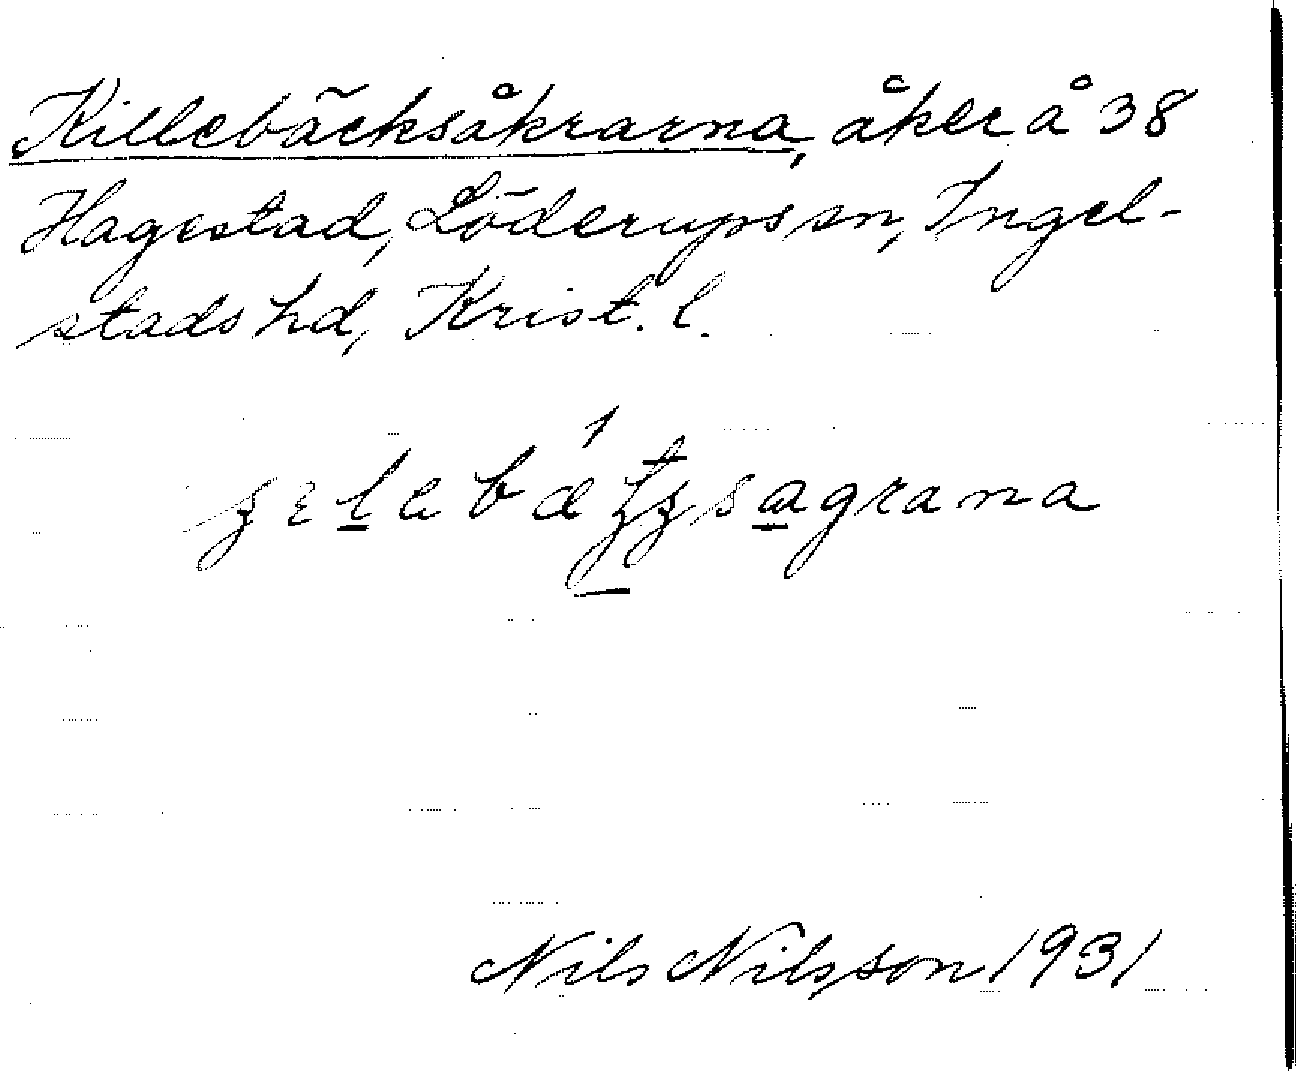 Killebäcksåkrarna, åker å 38
Hagestad, Löderups sn, Ingel-
stads hd, Krist. l.
Nils Nilsson 1931